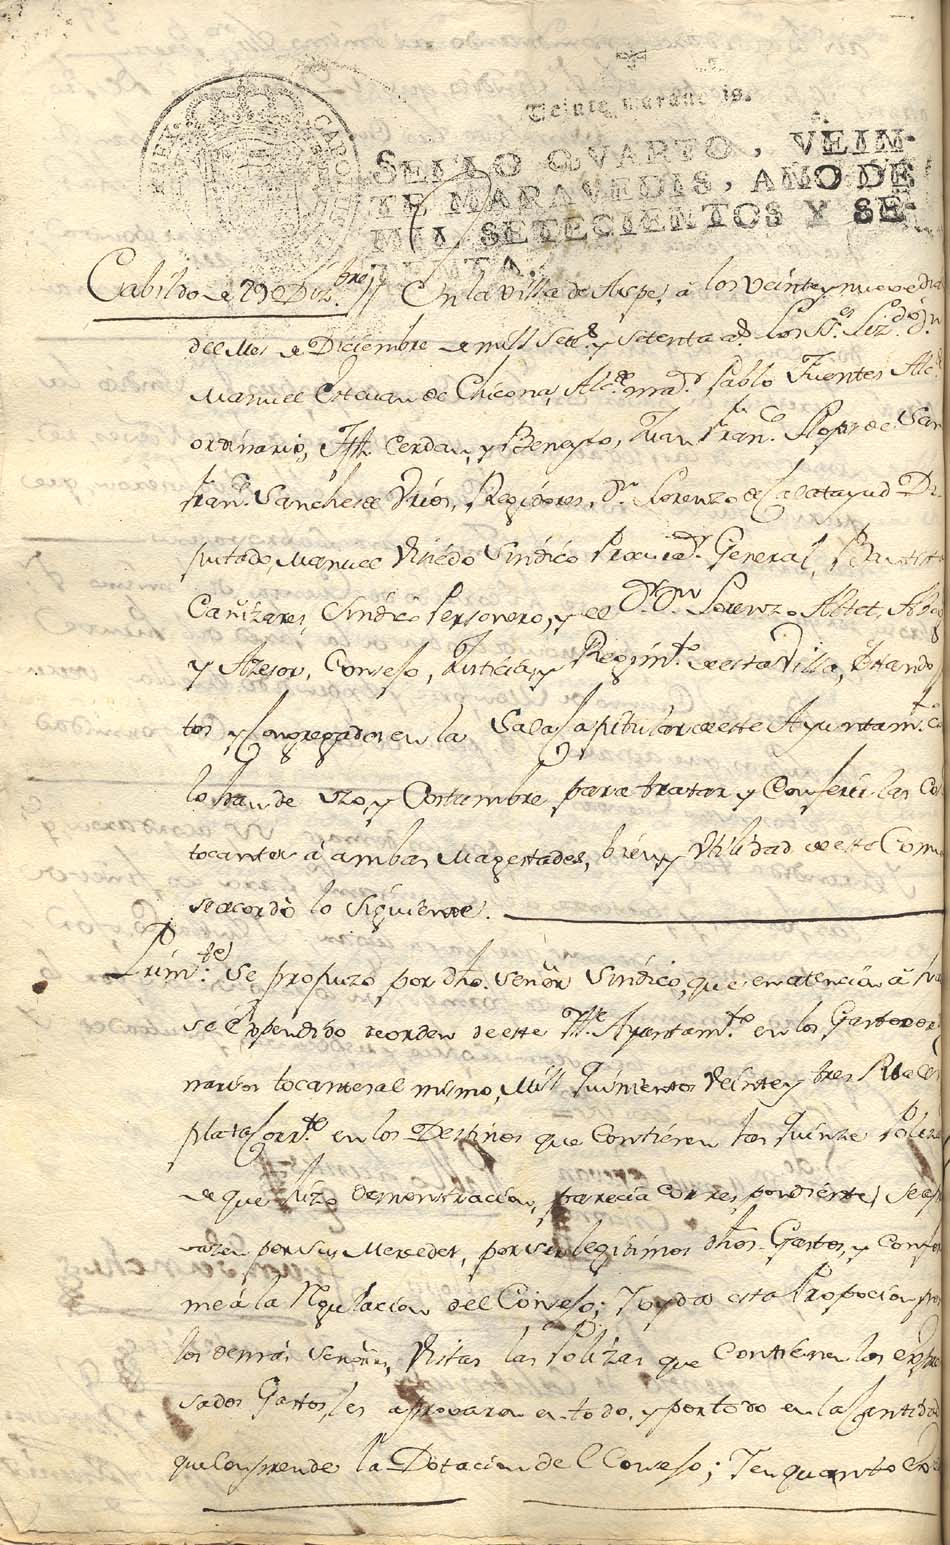 Veinte maravedis.
SELLO QVARTO, VEIN-
TE MARAVEDIS, AÑO DE
MIL SETECIENTOS Y SE-
TENTA.
Cabildo de 29 de Diz.bre // En la Villa de Aspe, â los veinte y nueve dias
del Mes de Diciembre de mill Set.s y setenta a.s Los SS.es Liz.do D.n
Manuel Estevan de Chicona, Alc.de may.r Pablo Fuentes Alc.e
ordinario, Jph. Cerdan, y Juan Fran.co
Fran.co Sanches de Regidores, D.n Lorenzo de Calatayud Di
putado, Manuel Sindico Procur.r General, Bautista
Cañizares, Sindico Personero, y el D.r D.n Lorenzo Abog
y Asesor, Consejo, Justicia, y Regim.to de esta Villa, Estando
tos y Congregados en la Sala Capitular de este Ayuntam.to
lo han de uzo, y Costumbre para tratar y Conferir las Co
tocantes â ambas Magestades, bien, y Utilidad de este Comu
se acordò lo siguiente.
Prim.te Se propuzo por dho. Señor Sindico, que en atencion â
se Expendido de orden de este Y.e Ayuntam.to en los Gastos or
narios tocantes al mismo, Mill quinientos Veinte y tres R.s de
plata Corr.te en los Destinos que Contienen las quinze Polizas
de que hizo demonstracion, parecia correspondiente, se
por sus Mercedes, por ser legitimos dhos. Gastos, y Confor
me à la Regulacion del Consejo; Y oyda esta Propocicion por
los demas Señores, Vistas las Polizas que Contienen los expre
sados Gastos, les aprovaron en todo, y por todo en la Cantidad
que Comprende la Dotacion del Consejo; Y en quanto